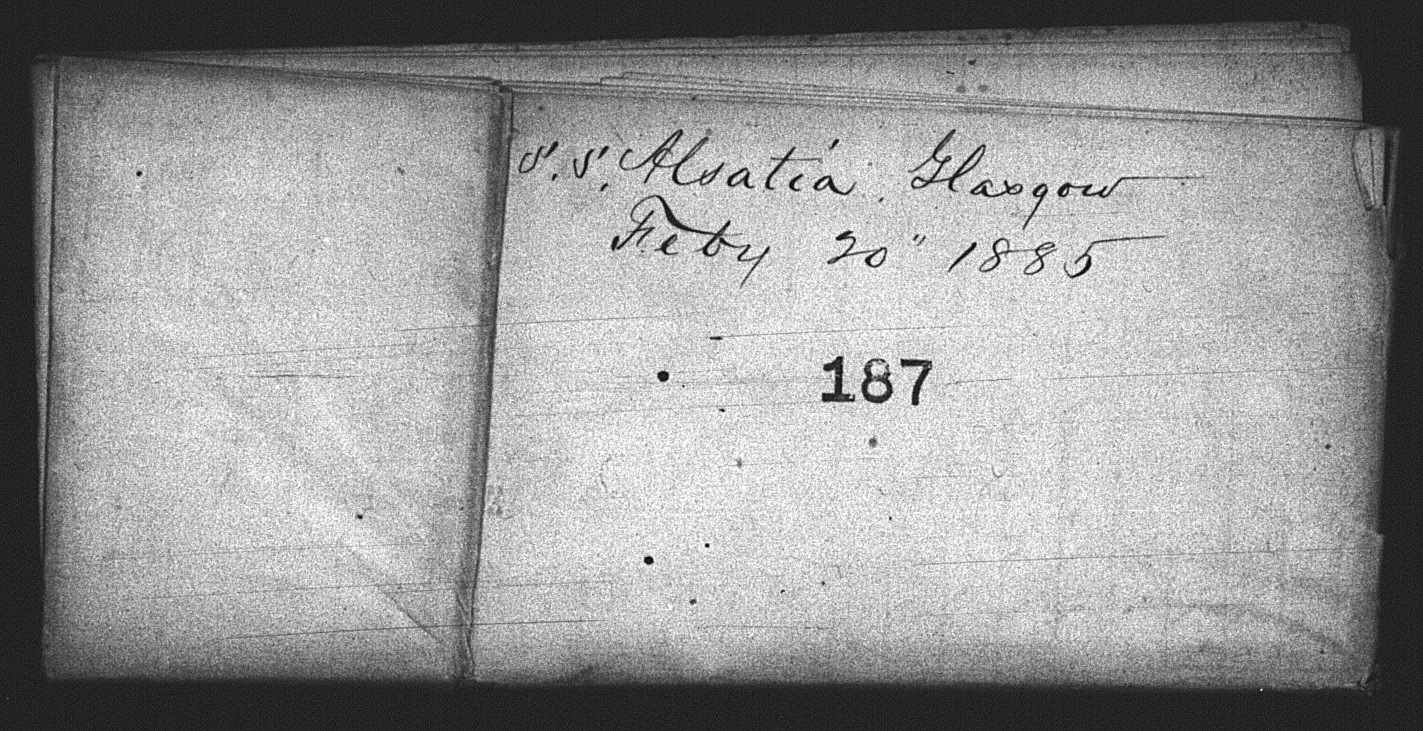 S.S. Alsatia. Glasgow
Feby 20" 1885
187